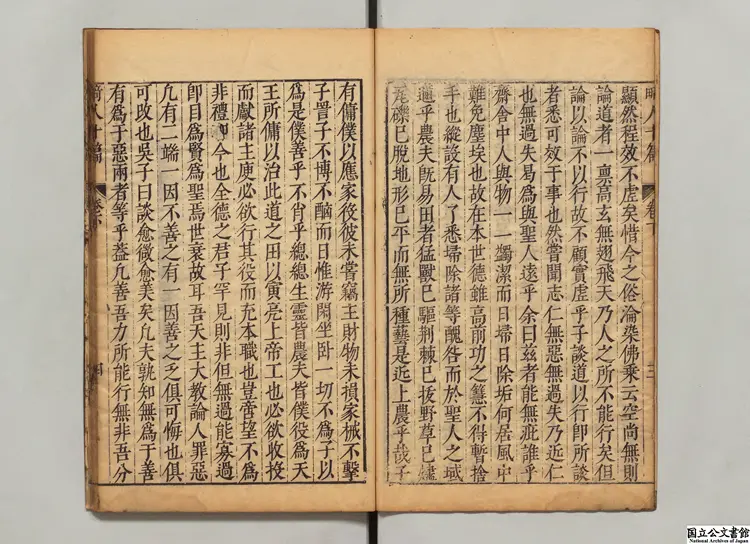 畸人十篇
卷下
三
顯然程效不虛矣惜今之俗淪染佛乘云空尚無則
論道者一稟高玄無翅飛天乃人之所不能行矣但
論以論不以行故不顧實虛乎子談道以行即所談
者悉可效于事也然嘗聞志仁無惡無過失乃近仁
也無過失易爲與聖人遠乎余曰茲者能無疵誰乎
齋舍中人與物一一蠲潔而日掃日除垢何居風中
難免塵埃也故在本世德雖高前功之簣不得暫捨
手也縱設有人了悉埽除諸等醜咎而於聖人之域
逈乎農夫旣易田者猛獸巳驅荊棘巳拔野草巳
礫巳脫地形巳平而無所種藝是近上農乎哉子
有傭僕以應家役彼未嘗竊主財物未損家械不擊
子詈子不博不酗而日惟游閑坐卧一切不爲子以
爲是僕善乎不肖乎總總生靈皆農夫皆僕役爲天
主所傭以治此道之田以寅亮上帝工也必欲收
而獻諸主庾必欲行其役而充本職也豈啻望不爲
非禮今也全德之君子罕見則非但無過能寡過
即目爲賢爲聖焉世衰故耳吾天主大教論人罪惡
凡有二端一因不善之有一因善之乏俱可悔也俱
可改也吳子曰談愈微愈美矣凡夫孰知無爲于善
有爲于惡兩者等乎葢凡善吾力所能行無非吾分
畸人十篇
卷下
四
国立公文書館
National Archives of Japan